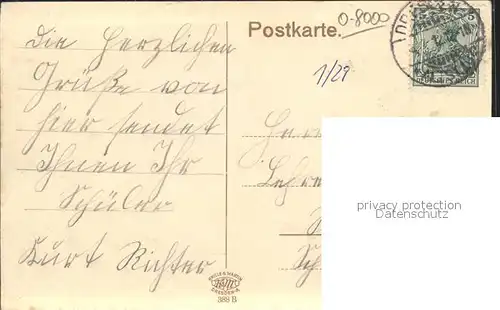 Postkarte.
0-8000
1/29
Die herzlichen
Grüße von
hier sendet
Ihnen Ihr
Schüler
Kurt Richter
Herrn
Lehre
privacy protection
Datenschutz
388 B